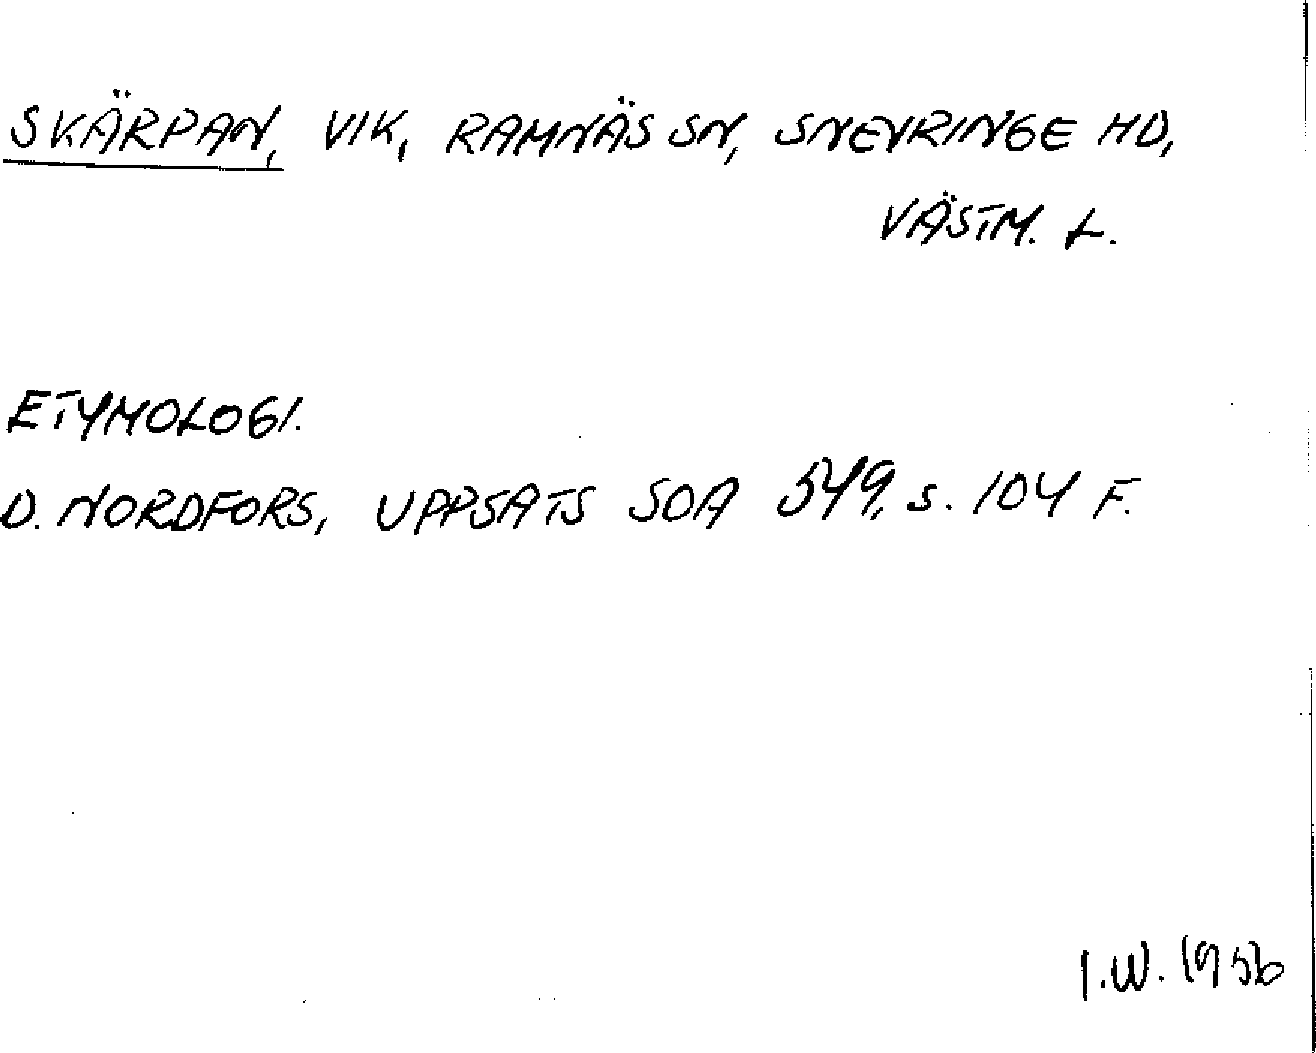 SKÄRPAN, VIK, RAMNÄS SN, SNEVRINGE HD,
VÄSTM. L.
ETYMOLOGI.
D. NORDFORS, UPPSATS SOA 549, s. 104 F.
I.W. 1956